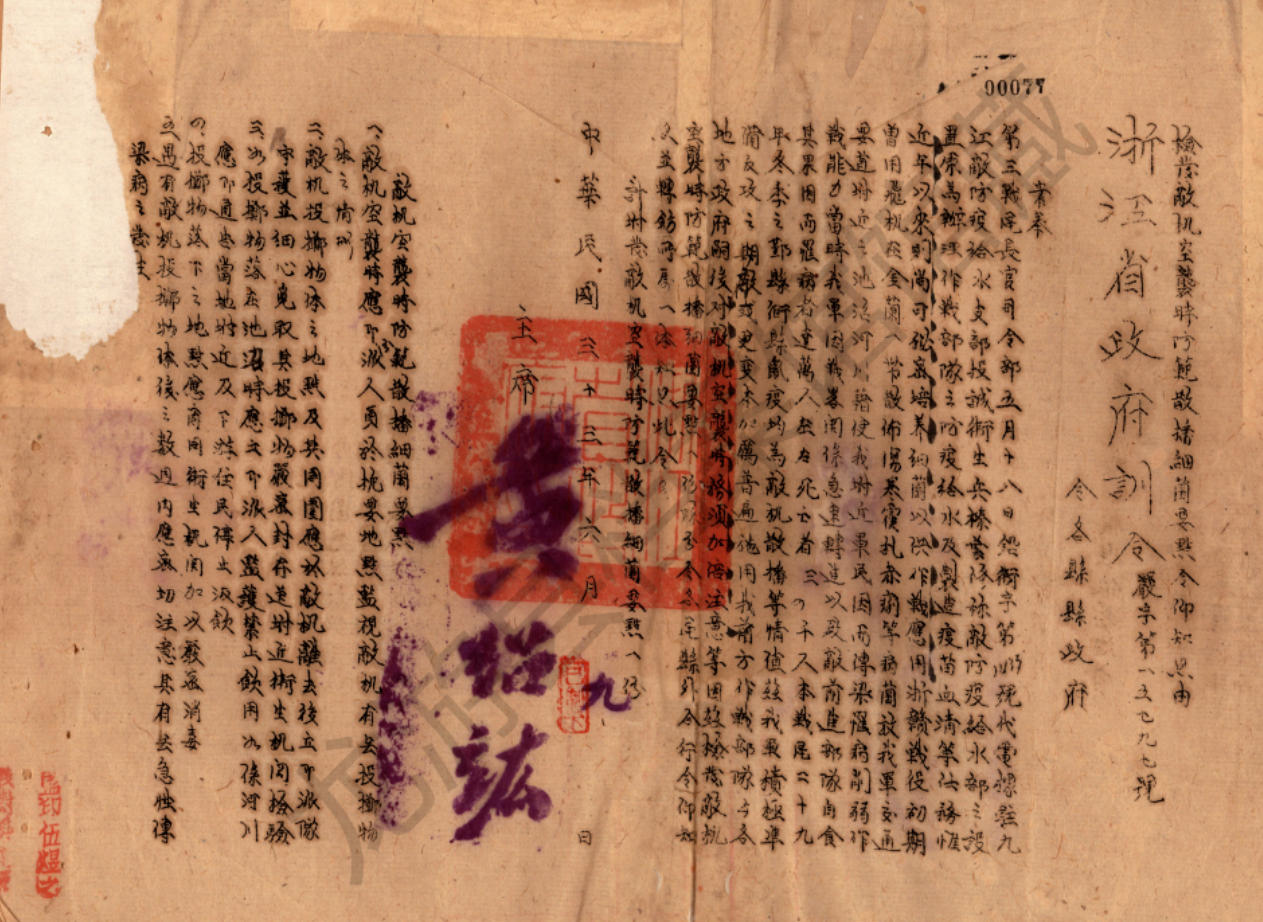 00077
檢發敵机空襲時防範散播細菌要點令仰知照由
浙江省政府訓令
嚴字第一五七九七號
令各縣縣政府
案奉
第三戰區長官司令部五月十八日銘衛字第號代電據駐九
江敵防疫給水支部投誠衛生兵榛葉修稱敵防疫給水部之設
置原為辦理作戰部隊之防疫給水及製造疫苗血清等任務惟
近年以來則尚可秘密培養細菌以供作戰應用浙贛戰役初期
曾用飛机在金蘭一帶散佈傷寒霍乱赤痢等病菌於我軍交通
要道附近之池沼河川藉使我附近軍民因而傳染罹病削弱作
戰能力當時我軍因戰畧関係急速轉進以致敵前進部隊自食
其果因而罹病者達萬人在死亡者三四千人本戰區二十九
年冬季之鄞縣衢縣鼠疫均為敵机散播等情值茲我軍積極準
備反攻之期敵或更變本加厲普遍施用我前方作戰部隊与各
地方政府嗣後对敵机空襲時務須加倍注意等因茲檢發敵机
空襲時防範散播細菌要點一份除分令各區縣外合行令仰知
照並轉飭所属一体知照此令
計附發敵机空襲時防範散播細菌要點一份
中華民國三十三年六月 九 日
主席
黃紹竑
敵机空襲時防範散播細菌要點
一、敵机空襲時應即派人員於扼要地點監視敵机有無投擲物
体之情形
二、敵机投擲物体之地點及其周圍應以敵机離去後立即派隊
守護並細心覓取其投擲物嚴密封存送附近衛生机関檢驗
三、如投擲物落在池沼時應立即派人監護禁止飲用如係河川
應即通告當地附近及下游住民停止汲飲
四、投擲物落下之地點應商同衛生机関加以嚴密消毒
五、遇有敵机投擲物体後之數週内應密切注意其有無急性傳
染病之發生